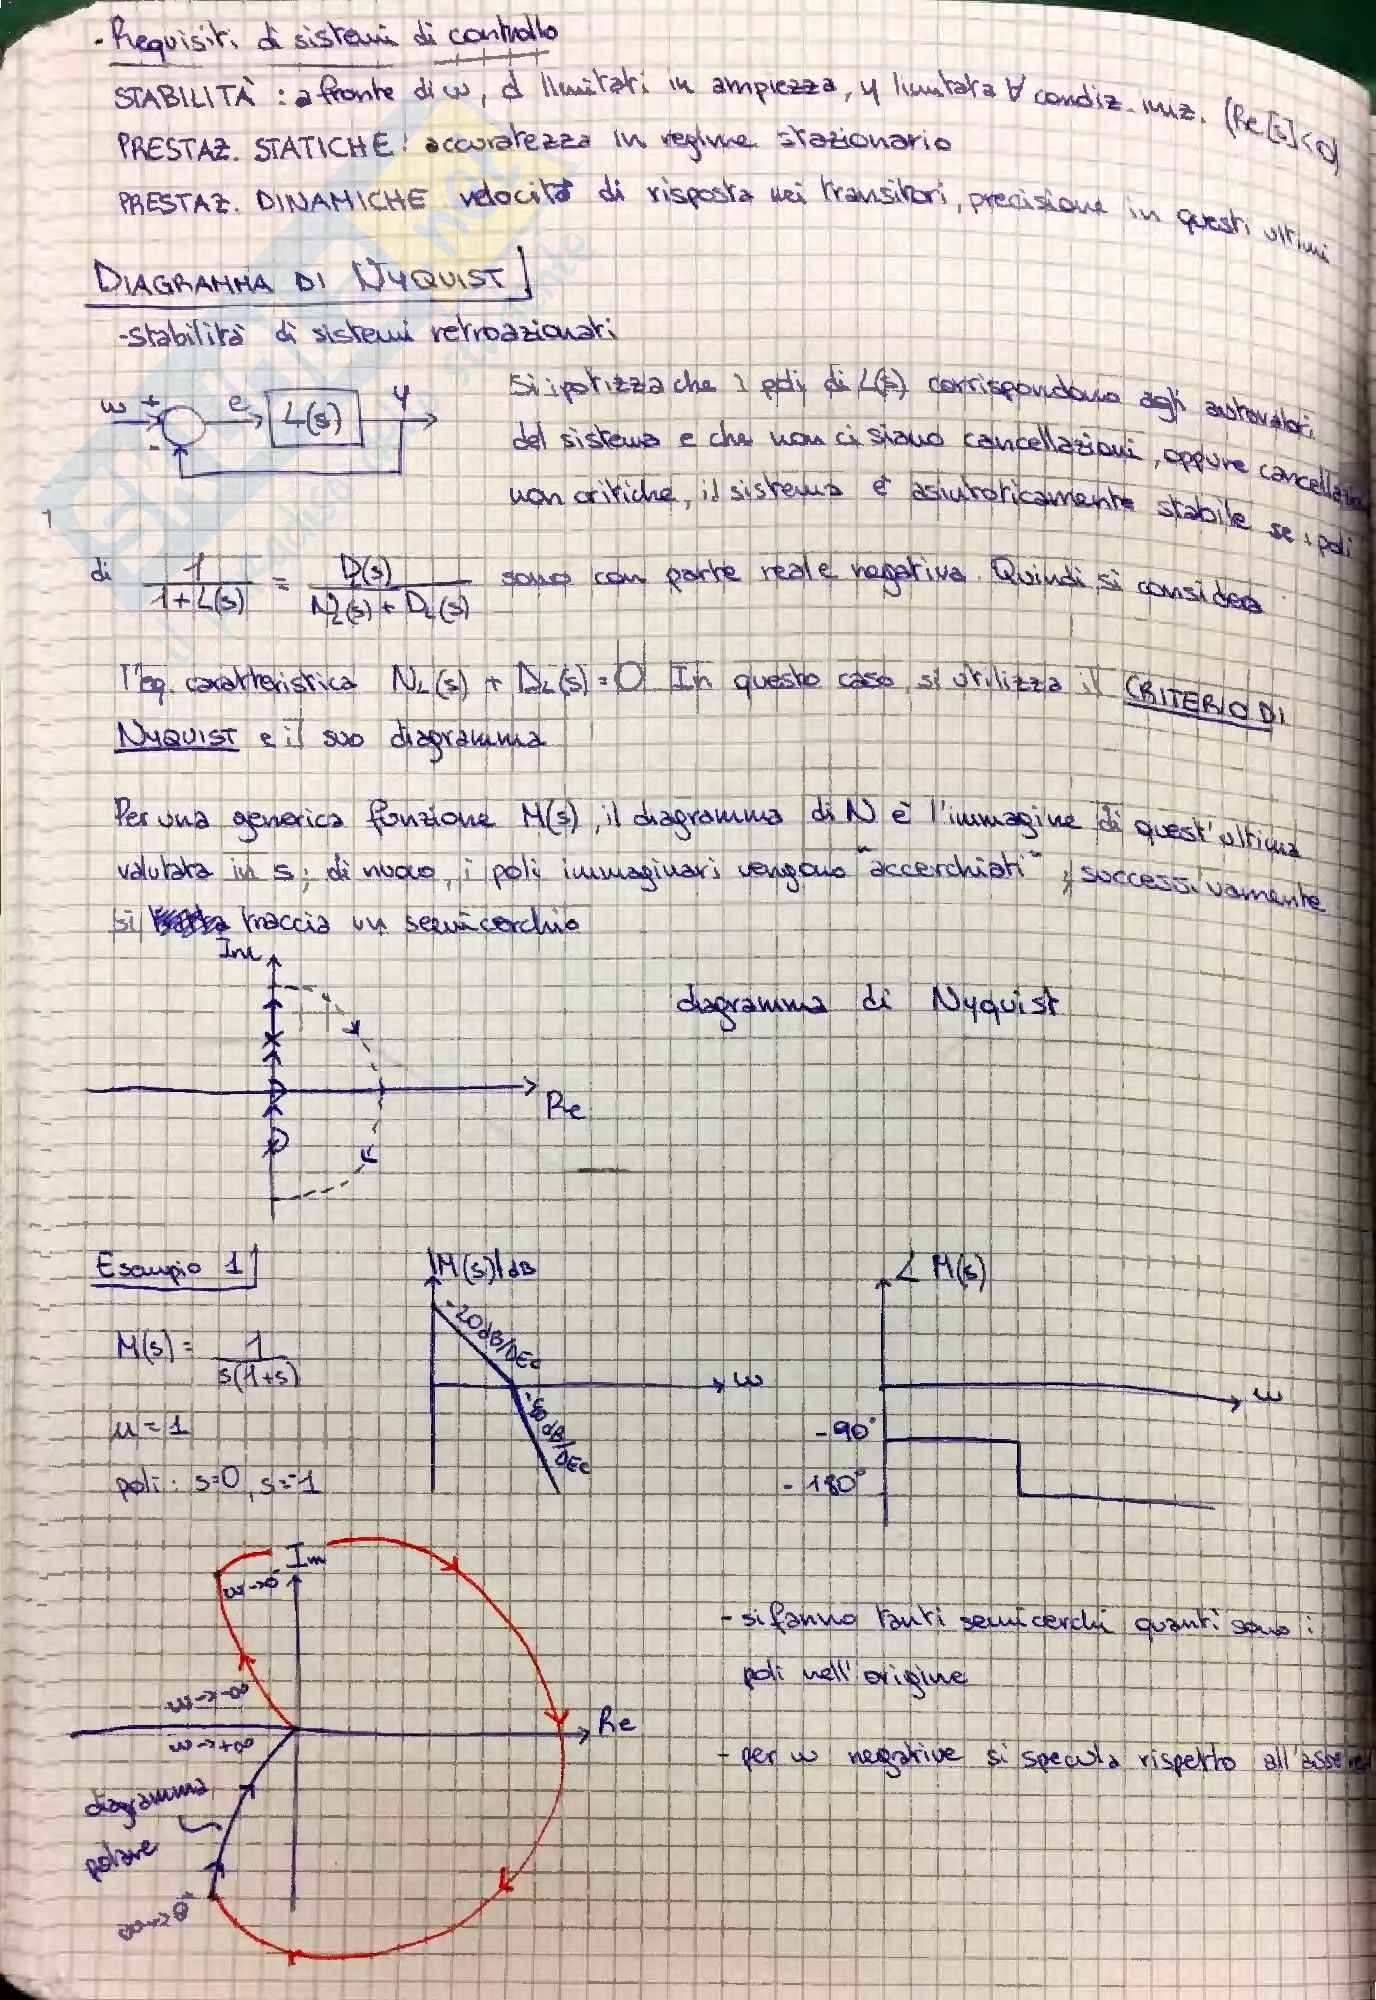 - Requisiti di sistemi di controllo
STABILITÀ : a fronte di w, d limitati in ampiezza, y limitata ∀ condiz. iniz. (Re[s]<0)
PRESTAZ. STATICHE: accuratezza in regime stazionario
PRESTAZ. DINAMICHE velocità di risposta nei transitori, precisione in questi ultimi
DIAGRAMMA DI NYQUIST
- stabilità di sistemi retroazionati
w + - e L(s) y
Si ipotizza che i poli di L(s) corrispondono agli autovalori
del sistema e che non ci siano cancellazioni, oppure cancellazioni
non critiche, il sistema è asintoticamente stabile se i poli
di 1/(1+L(s)) = D(s)/(NL(s) + DL(s)) sono con parte reale negativa. Quindi si considera
l'eq. caratteristica NL(s) + DL(s) = 0 In questo caso si utilizza il CRITERIO DI
NYQUIST e il suo diagramma
Per una generica funzione M(s), il diagramma di N è l'immagine di quest'ultima
valutata in s; di nuovo, i poli immaginari vengono "accerchiati", successivamente
si traccia un semicerchio
Im
Re
diagramma di Nyquist
Esempio 1
M(s) = 1/(s(1+s))
μ = 1
poli: s=0, s=-1
|M(s)|dB
-20dB/DEC
dB/DEC
w
∠ M(s)
w
-90°
-180°
Im
w→0⁻
w→-∞
w→+∞
Re
diagramma
polare
- si fanno tanti semicerchi quanti sono i
poli nell'origine
- per w negative si specula rispetto all'asse